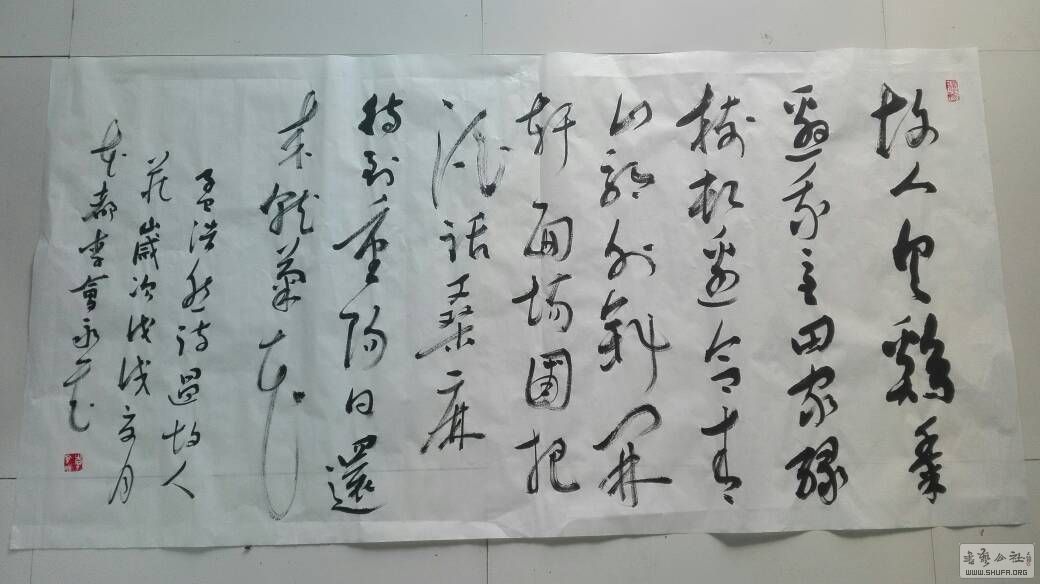 故人具鷄黍
邀我至田家緑
樹村邊合青
山郭外斜開
軒面場圃把
酒話桑麻
待到重陽日還
來就菊花
孟浩然詩過故人
莊歲次戊戌夏月
都李會
书艺公社
WWW.SHUFA.ORG